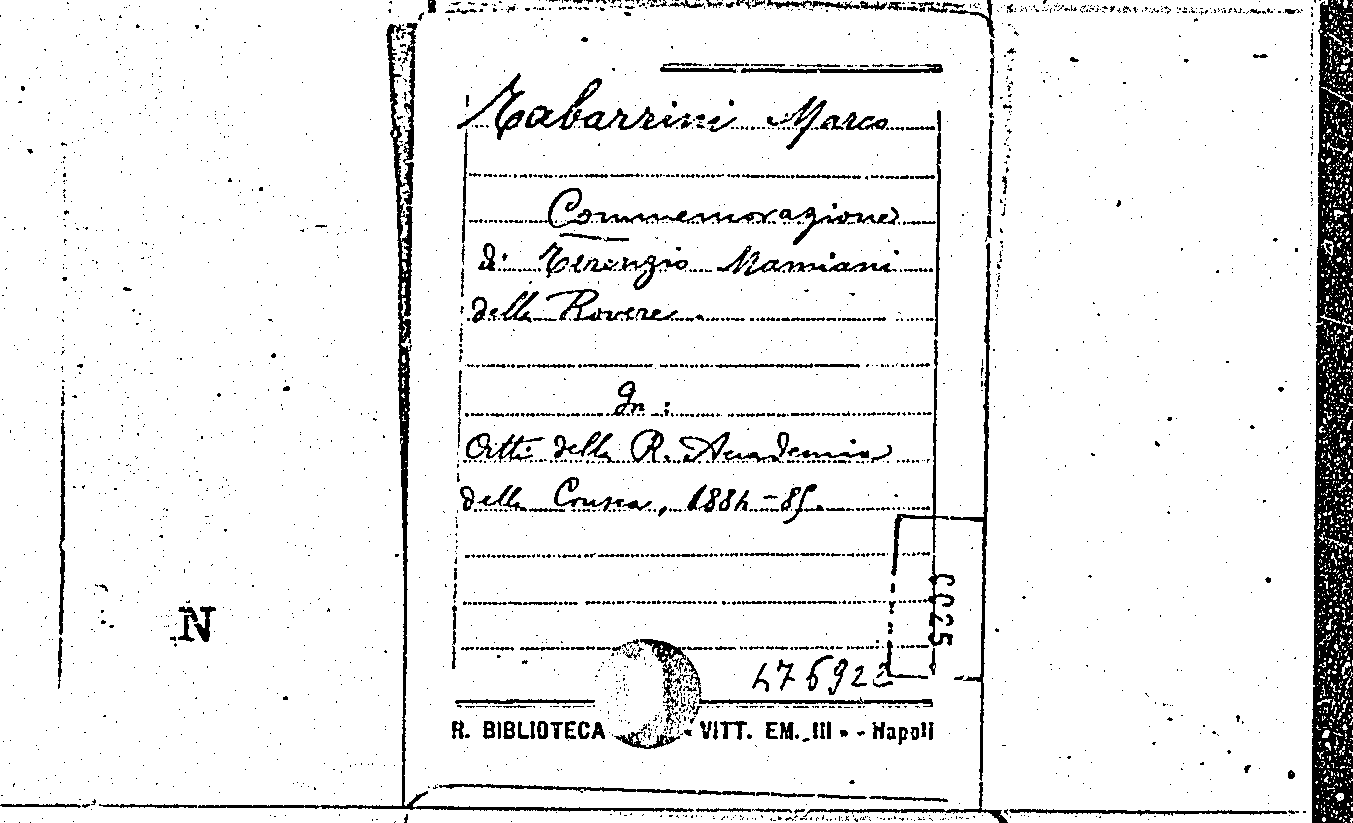 Tabarrini Marco
Commemorazione
di Terenzio Mamiani
della Rovere.
In:
Atti della R. Accademia
della Crusca, 1884-85.
CC25
N
476922
R. BIBLIOTECA VITT. EM. III - Napoli